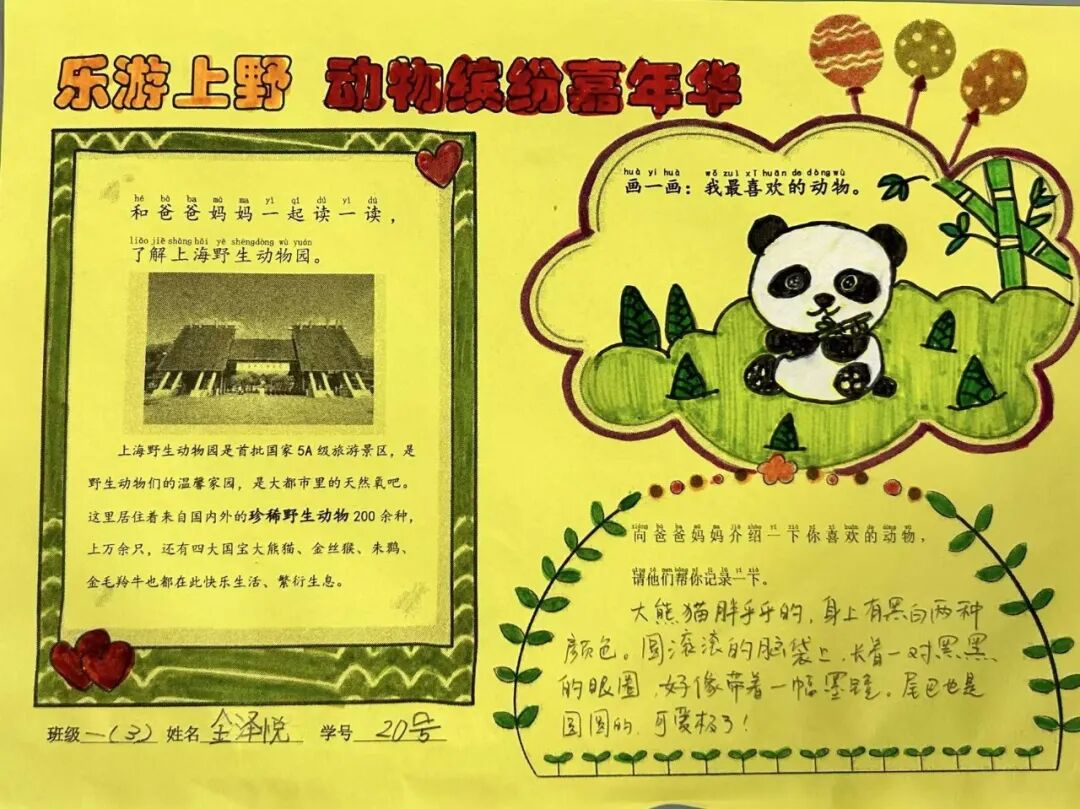 乐游上野 动物缤纷嘉年华
hé bà ba mā ma yì qǐ dú yì dú
和爸爸妈妈一起读一读，
liǎo jiě shàng hǎi yě shēng dòng wù yuán
了解上海野生动物园。
上海野生动物园是首批国家 5A 级旅游景区，是
野生动物们的温馨家园，是大都市里的天然氧吧。
这里居住着来自国内外的珍稀野生动物 200 余种，
上万余只，还有四大国宝大熊猫、金丝猴、朱鹮、
金毛羚牛也都在此快乐生活、繁衍生息。
班级 一（3） 姓名 金泽悦 学号 20号
huà yi huà wǒ zuì xǐ huān de dòng wù
画一画：我最喜欢的动物。
向爸爸妈妈介绍一下你喜欢的动物，
请他们帮你记录一下。
大熊猫胖乎乎的，身上有黑白两种
颜色。圆滚滚的脑袋上，长着一对黑黑
的眼圈，好像带着一幅墨镜。尾巴也是
圆圆的，可爱极了！